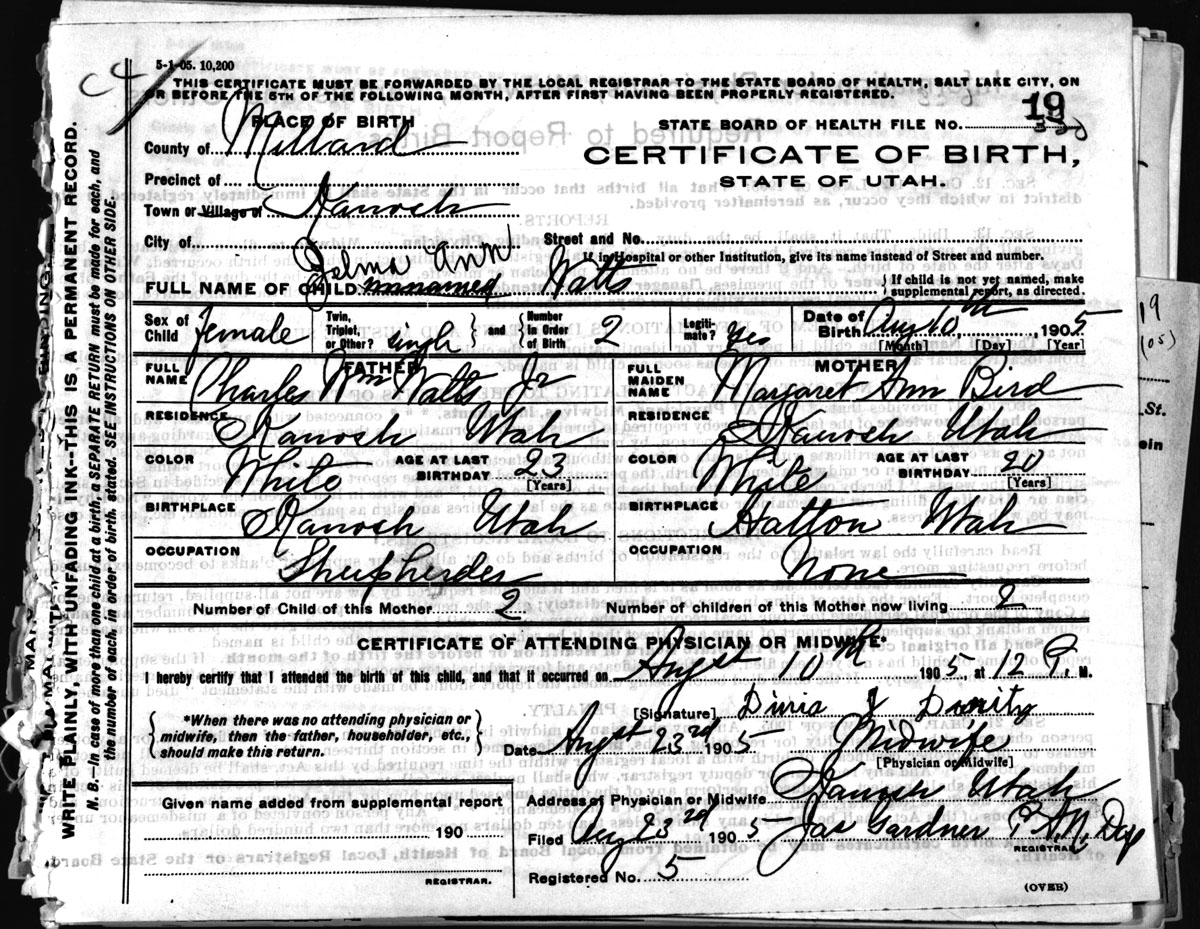 5-1-05. 10,200
THIS CERTIFICATE MUST BE FORWARDED BY THE LOCAL REGISTRAR TO THE STATE BOARD OF HEALTH, SALT LAKE CITY, ON
OR BEFORE THE 5TH OF THE FOLLOWING MONTH, AFTER FIRST HAVING BEEN PROPERLY REGISTERED.
PLACE OF BIRTH
STATE BOARD OF HEALTH FILE No. 19
County of Millard
CERTIFICATE OF BIRTH,
STATE OF UTAH.
Precinct of
Town or Village of Kanosh
City of
Street and No.
If in Hospital or other Institution, give its name instead of Street and number.
Zelma "Ann"
FULL NAME OF CHILD unnamed Watts
If child is not yet named, make supplemental report, as directed.
Sex of Child Female
Twin, Triplet, or Other? single and Number in Order of Birth 2
Legitimate? Yes
Date of Birth Aug 10th 1905
[Month] [Day] [Year]
FATHER
FULL NAME Charles Wm Watts Jr
RESIDENCE Kanosh Utah
COLOR White AGE AT LAST BIRTHDAY 23 [Years]
BIRTHPLACE Kanosh Utah
OCCUPATION Sheepherder
MOTHER
FULL MAIDEN NAME Margaret Ann Bird
RESIDENCE Kanosh Utah
COLOR White AGE AT LAST BIRTHDAY 20 [Years]
BIRTHPLACE Hatton Utah
OCCUPATION None
Number of Child of this Mother 2 Number of children of this Mother now living 2
CERTIFICATE OF ATTENDING PHYSICIAN OR MIDWIFE*
I hereby certify that I attended the birth of this child, and that it occurred on Augst 10th 1905, at 12 P. M.
*When there was no attending physician or
midwife, then the father, householder, etc.,
should make this return.
[Signature]
Date Augst 23rd 1905 Midwife
[Physician or Midwife]
Given name added from supplemental report
190
REGISTRAR.
Address of Physician or Midwife Kanosh Utah
Filed Aug 23rd 1905 Jas Gardner
REGISTRAR.
Registered No. 5
(OVER)
WRITE PLAINLY, WITH UNFADING INK--THIS IS A PERMANENT RECORD.
N. B.—In case of more than one child at a birth, a SEPARATE RETURN must be made for each, and
the number of each, in order of birth, stated. SEE INSTRUCTIONS ON OTHER SIDE.
19
(05)
St.
ein